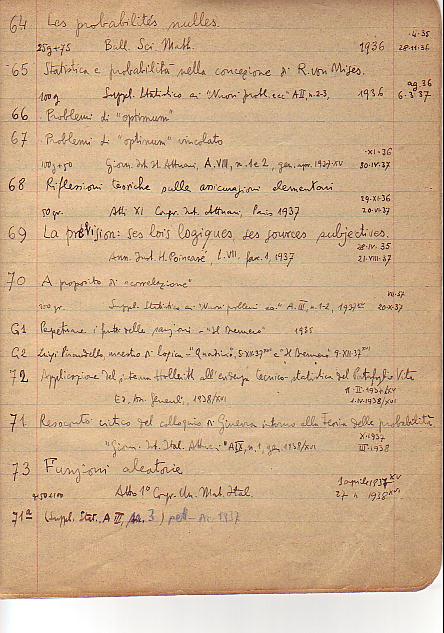 64 Les probabilités nulles. 4-35
25g+75 Bull. Sci. Math. 1936 28-11-36
65 Statistica e probabilità nella concezione di R. von Mises. ag 36
100g Suppl. Statistico ai "Nuovi probl. ecc" A II, n. 2-3, 1936 6-3-37
66 Problemi di "optimum"
67 Problemi di "optimum" vincolato -XI-36
100g+50 Giorn. Ist. It. Attuari, A. VIII, n. 1 e 2, gen. apr. 1937-XV 30-IV-37
68 Riflessioni teoriche sulle assicurazioni elementari 29-XI-36
50 gr. Atti XI Congr. Int. Attuari, Paris 1937 20-VI-37
69 La prévision: ses lois logiques, ses sources subjectives. 28-IV-35
Ann. Inst. H. Poincaré, t. VII. fasc. 1, 1937 21-VIII-37
70 A proposito di "correlazione" VII-37
100 gr. Suppl. Statistico ai "Nuovi problemi ecc." A. III, n. 1-2, 1937 20-X-37
G1 1935
G2 Luigi Pirandello maestro di logica - "Quadrivio", 5-XII-37 XVI e 9-XII-37 XVI
72 Applicazione del sistema Hollerith all'
Ed. Ass. Generali, 1938/XVI 1-IV-1938/XVI
71 Resoconto critico del colloquio di Ginevra intorno alla Teoria delle probabilità
X-1937
"Giorn. Ist. Ital. Attuari" A IX, n. 1, gen. 1938/XVI III-1938
73 Funzioni aleatorie 1 aprile 1937 XV
+50+100 Atti 1° Congr. Un. Mat. Ital. 1938 XVI
71a (Suppl. Stat. A III, 3) 1937